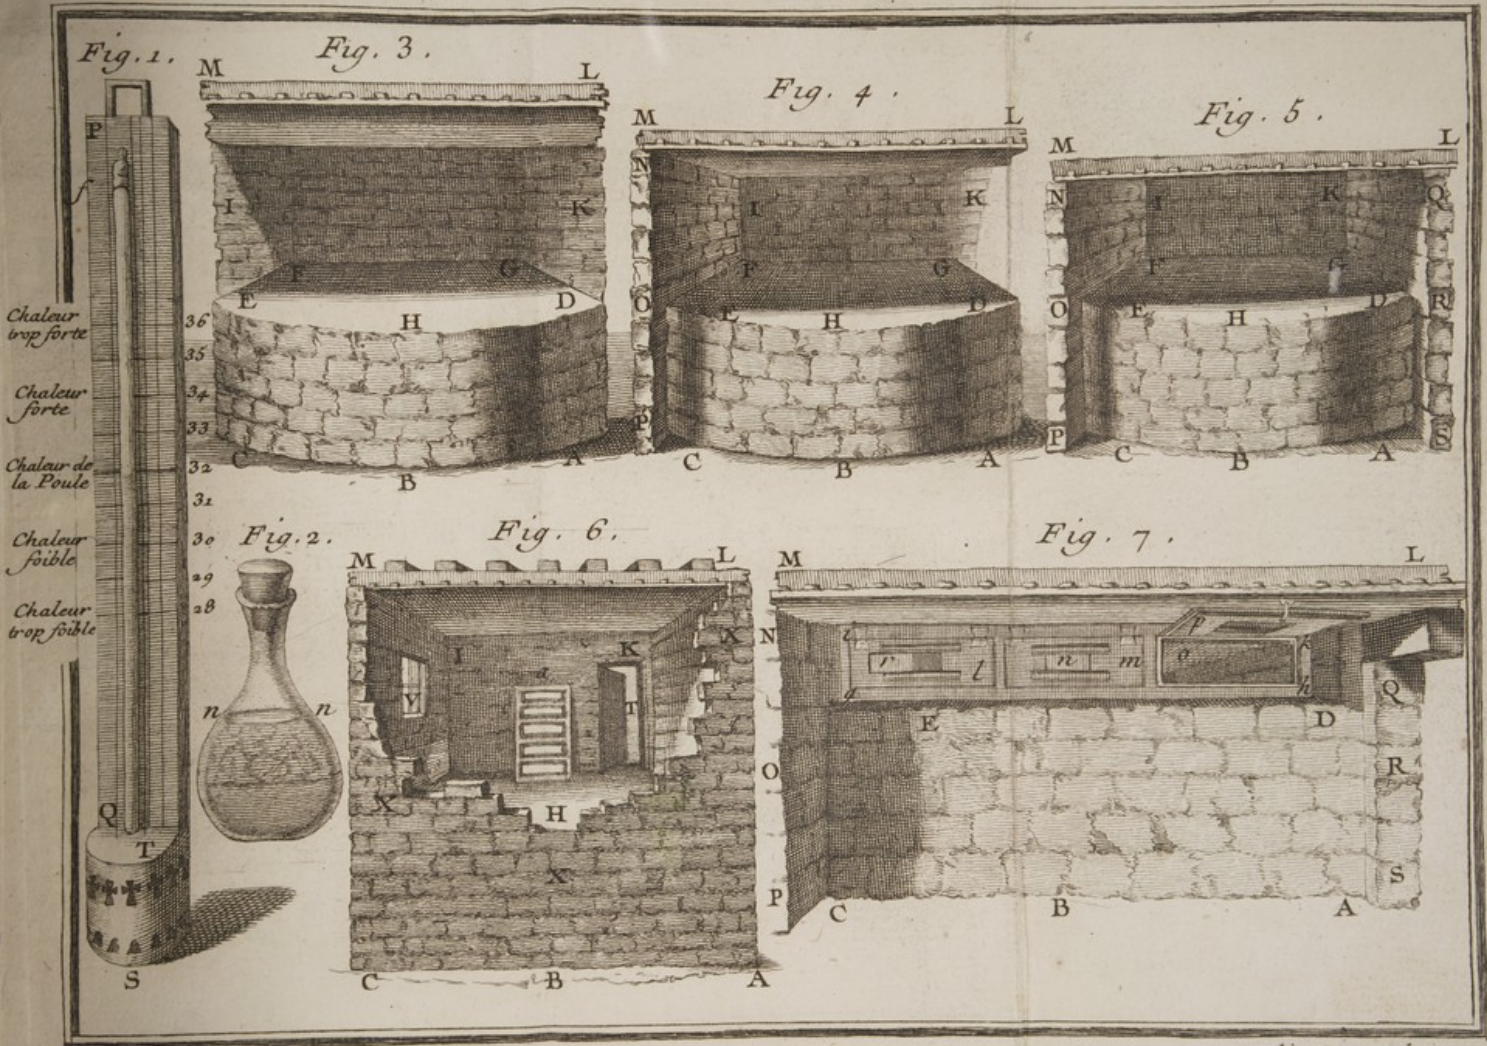 Fig. 1.
P
Chaleur
trop forte
Chaleur
forte
Chaleur de
la Poule
Chaleur
foible
Chaleur
trop foible
36
35
34
33
32
31
30
29
28
Q
T
S
Fig. 2.
n n
Fig. 3.
M L
I K
F G
E H D
C B A
Fig. 4.
M L
N
I K
F G
O E H D
P
C B A
Fig. 5.
M L
N I K Q
F G
O E H D R
P C B A S
Fig. 6.
M L
I K X
d
V T
X H
X
C B A
Fig. 7.
M L
N i p
r l n m o k
q h Q
E D
O R
P S
C B A